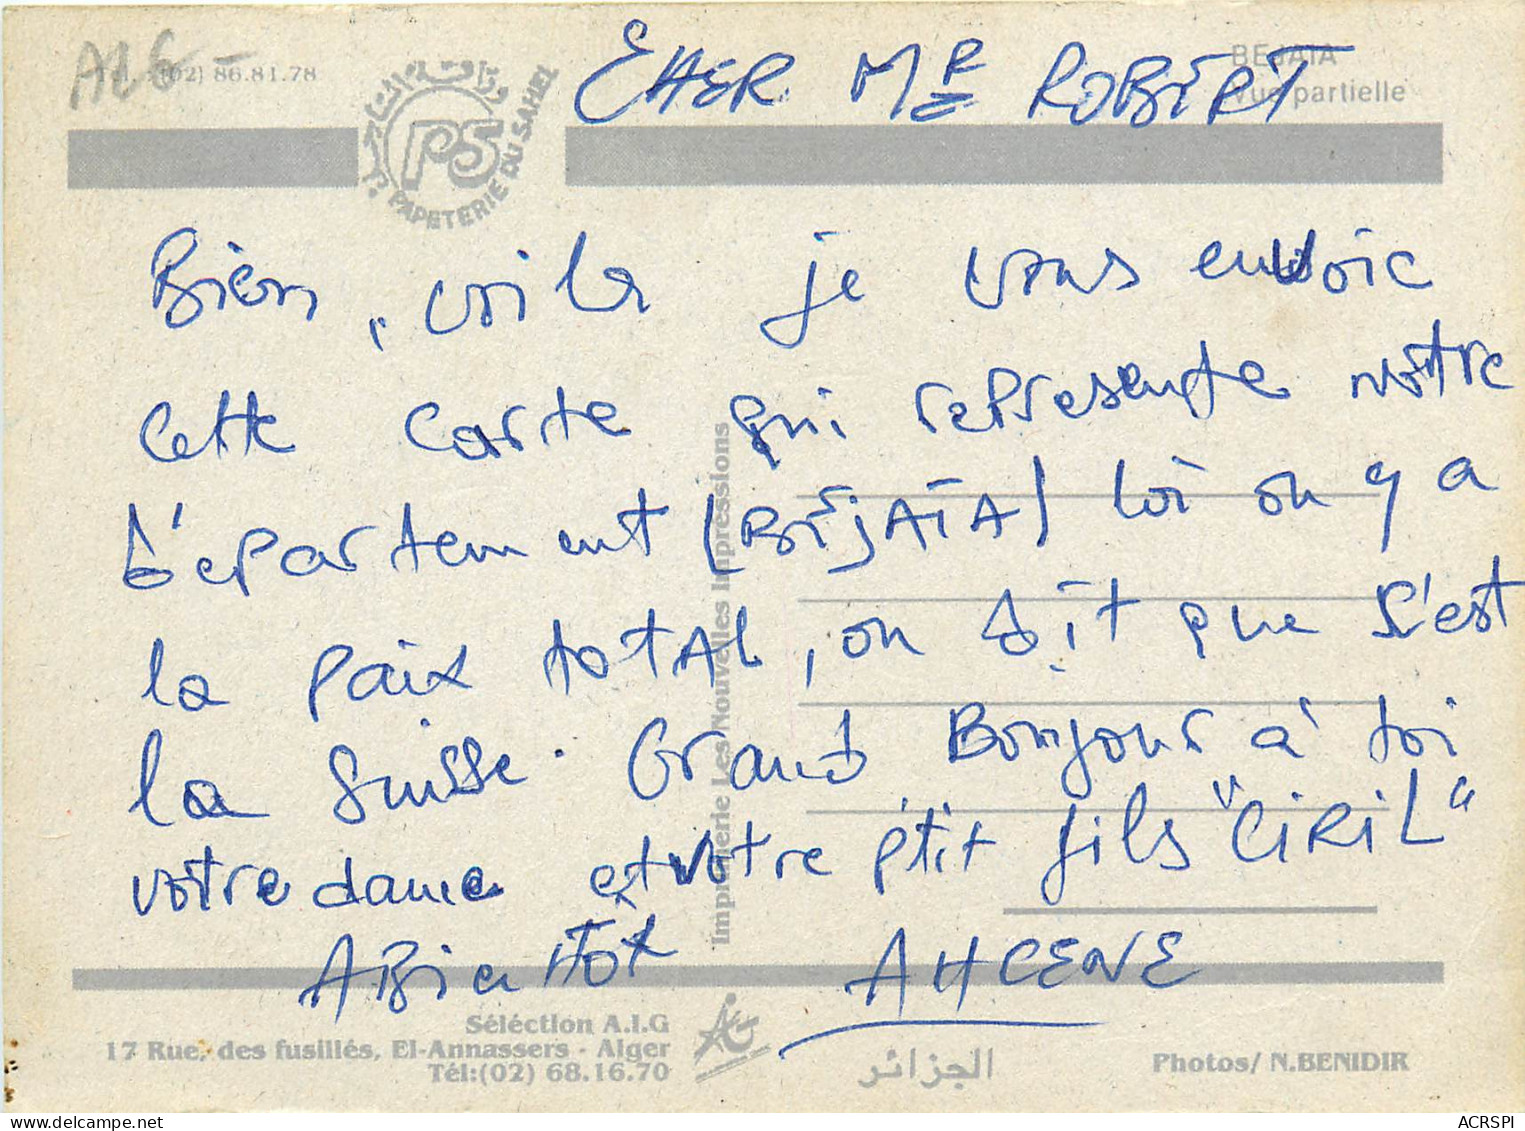 ALG -
Tél. : (02) 86.81.78
PS
PAPETERIE DU SAHEL
BEJAIA
Vue partielle
CHER Mr ROBERT
Bien, voila je vous envoie
cette carte qui represente notre
département (BÉJAÏA) loi on y a
la paix totAL, on dit que s'est
la suisse. Grand Bonjour à toi
votre dame et votre p'tit fils "CIRIL"
ABientôt AHCENE
Imprimerie Les Nouvelles Impressions
Séléction A.I.G
17 Rue, des fusillés, El-Annassers - Alger
Tél:(02) 68.16.70
الجزائر
Photos/ N.BENIDIR
ACRSPI